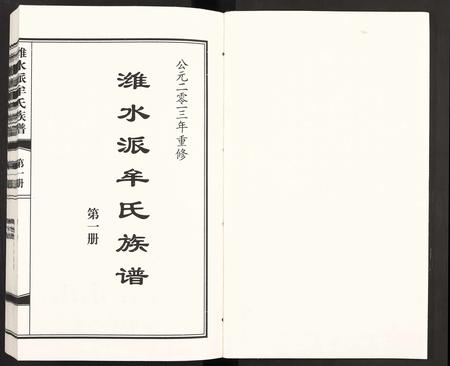 公元二零一三年重修
潍水派牟氏族谱
第一册
潍水派牟氏族谱
第一册